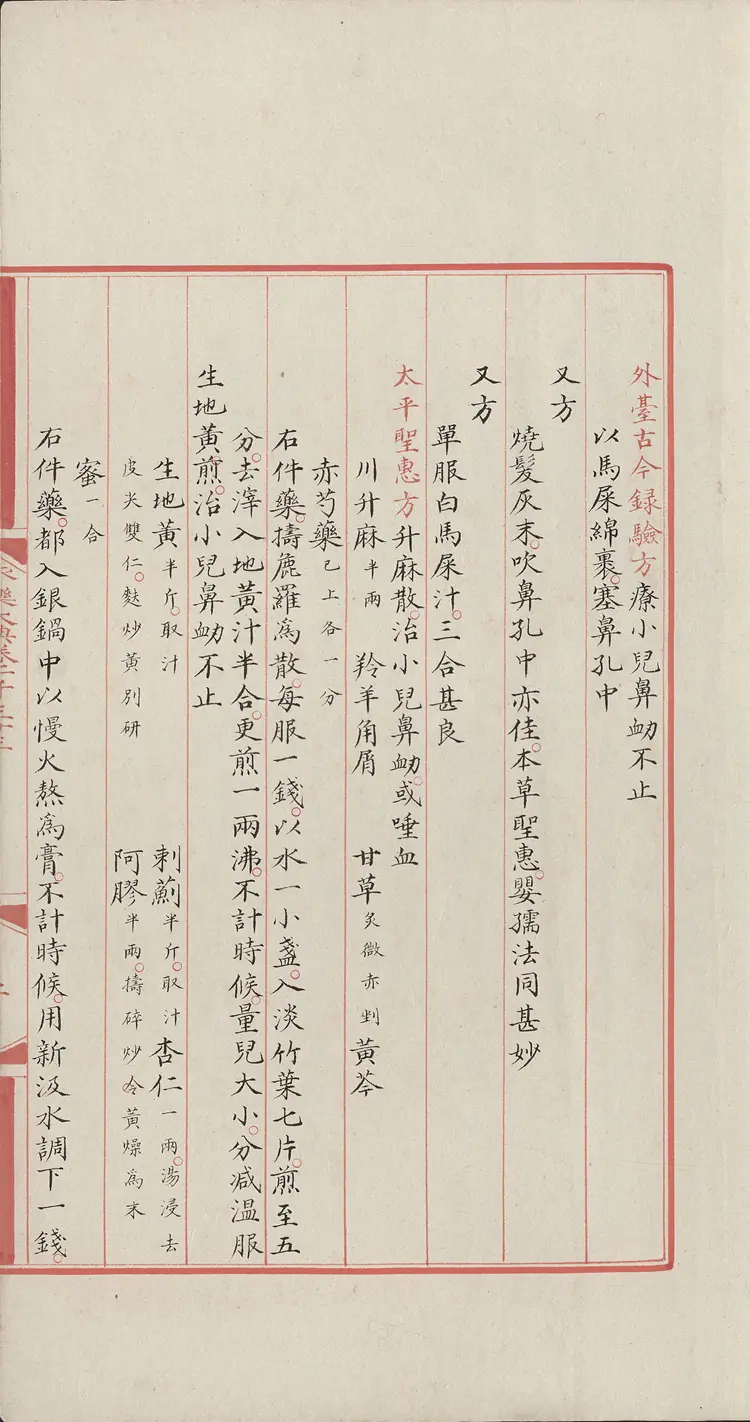 外臺古今録驗方療小兒鼻衂不止
以馬屎綿裹。塞鼻孔中
又方
燒髮灰末。吹鼻孔中亦佳。本草聖惠。嬰孺法同甚妙
又方
單服白馬屎汁。三合甚良
太平聖惠方升麻散。治小兒鼻衂。或唾血
川升麻半兩 羚羊角屑 甘草炙微赤剉 黃芩
赤芍藥已上各一分
右件藥。擣麁羅爲散。每服一錢。以水一小盞。入淡竹葉七片。煎至五
分。去滓入地黃汁半合。更煎一兩沸。不計時候。量兒大小。分减溫服
生地黃煎。治小兒鼻衂不止
生地黃半斤。取汁 刺薊半斤。取汁 杏仁一兩。湯浸去
皮尖雙仁。麩炒黃別研 阿膠半兩。擣碎炒令黃燥爲末
蜜一合
右件藥。都入銀鍋中以慢火熬爲膏。不計時候。用新汲水調下一錢。